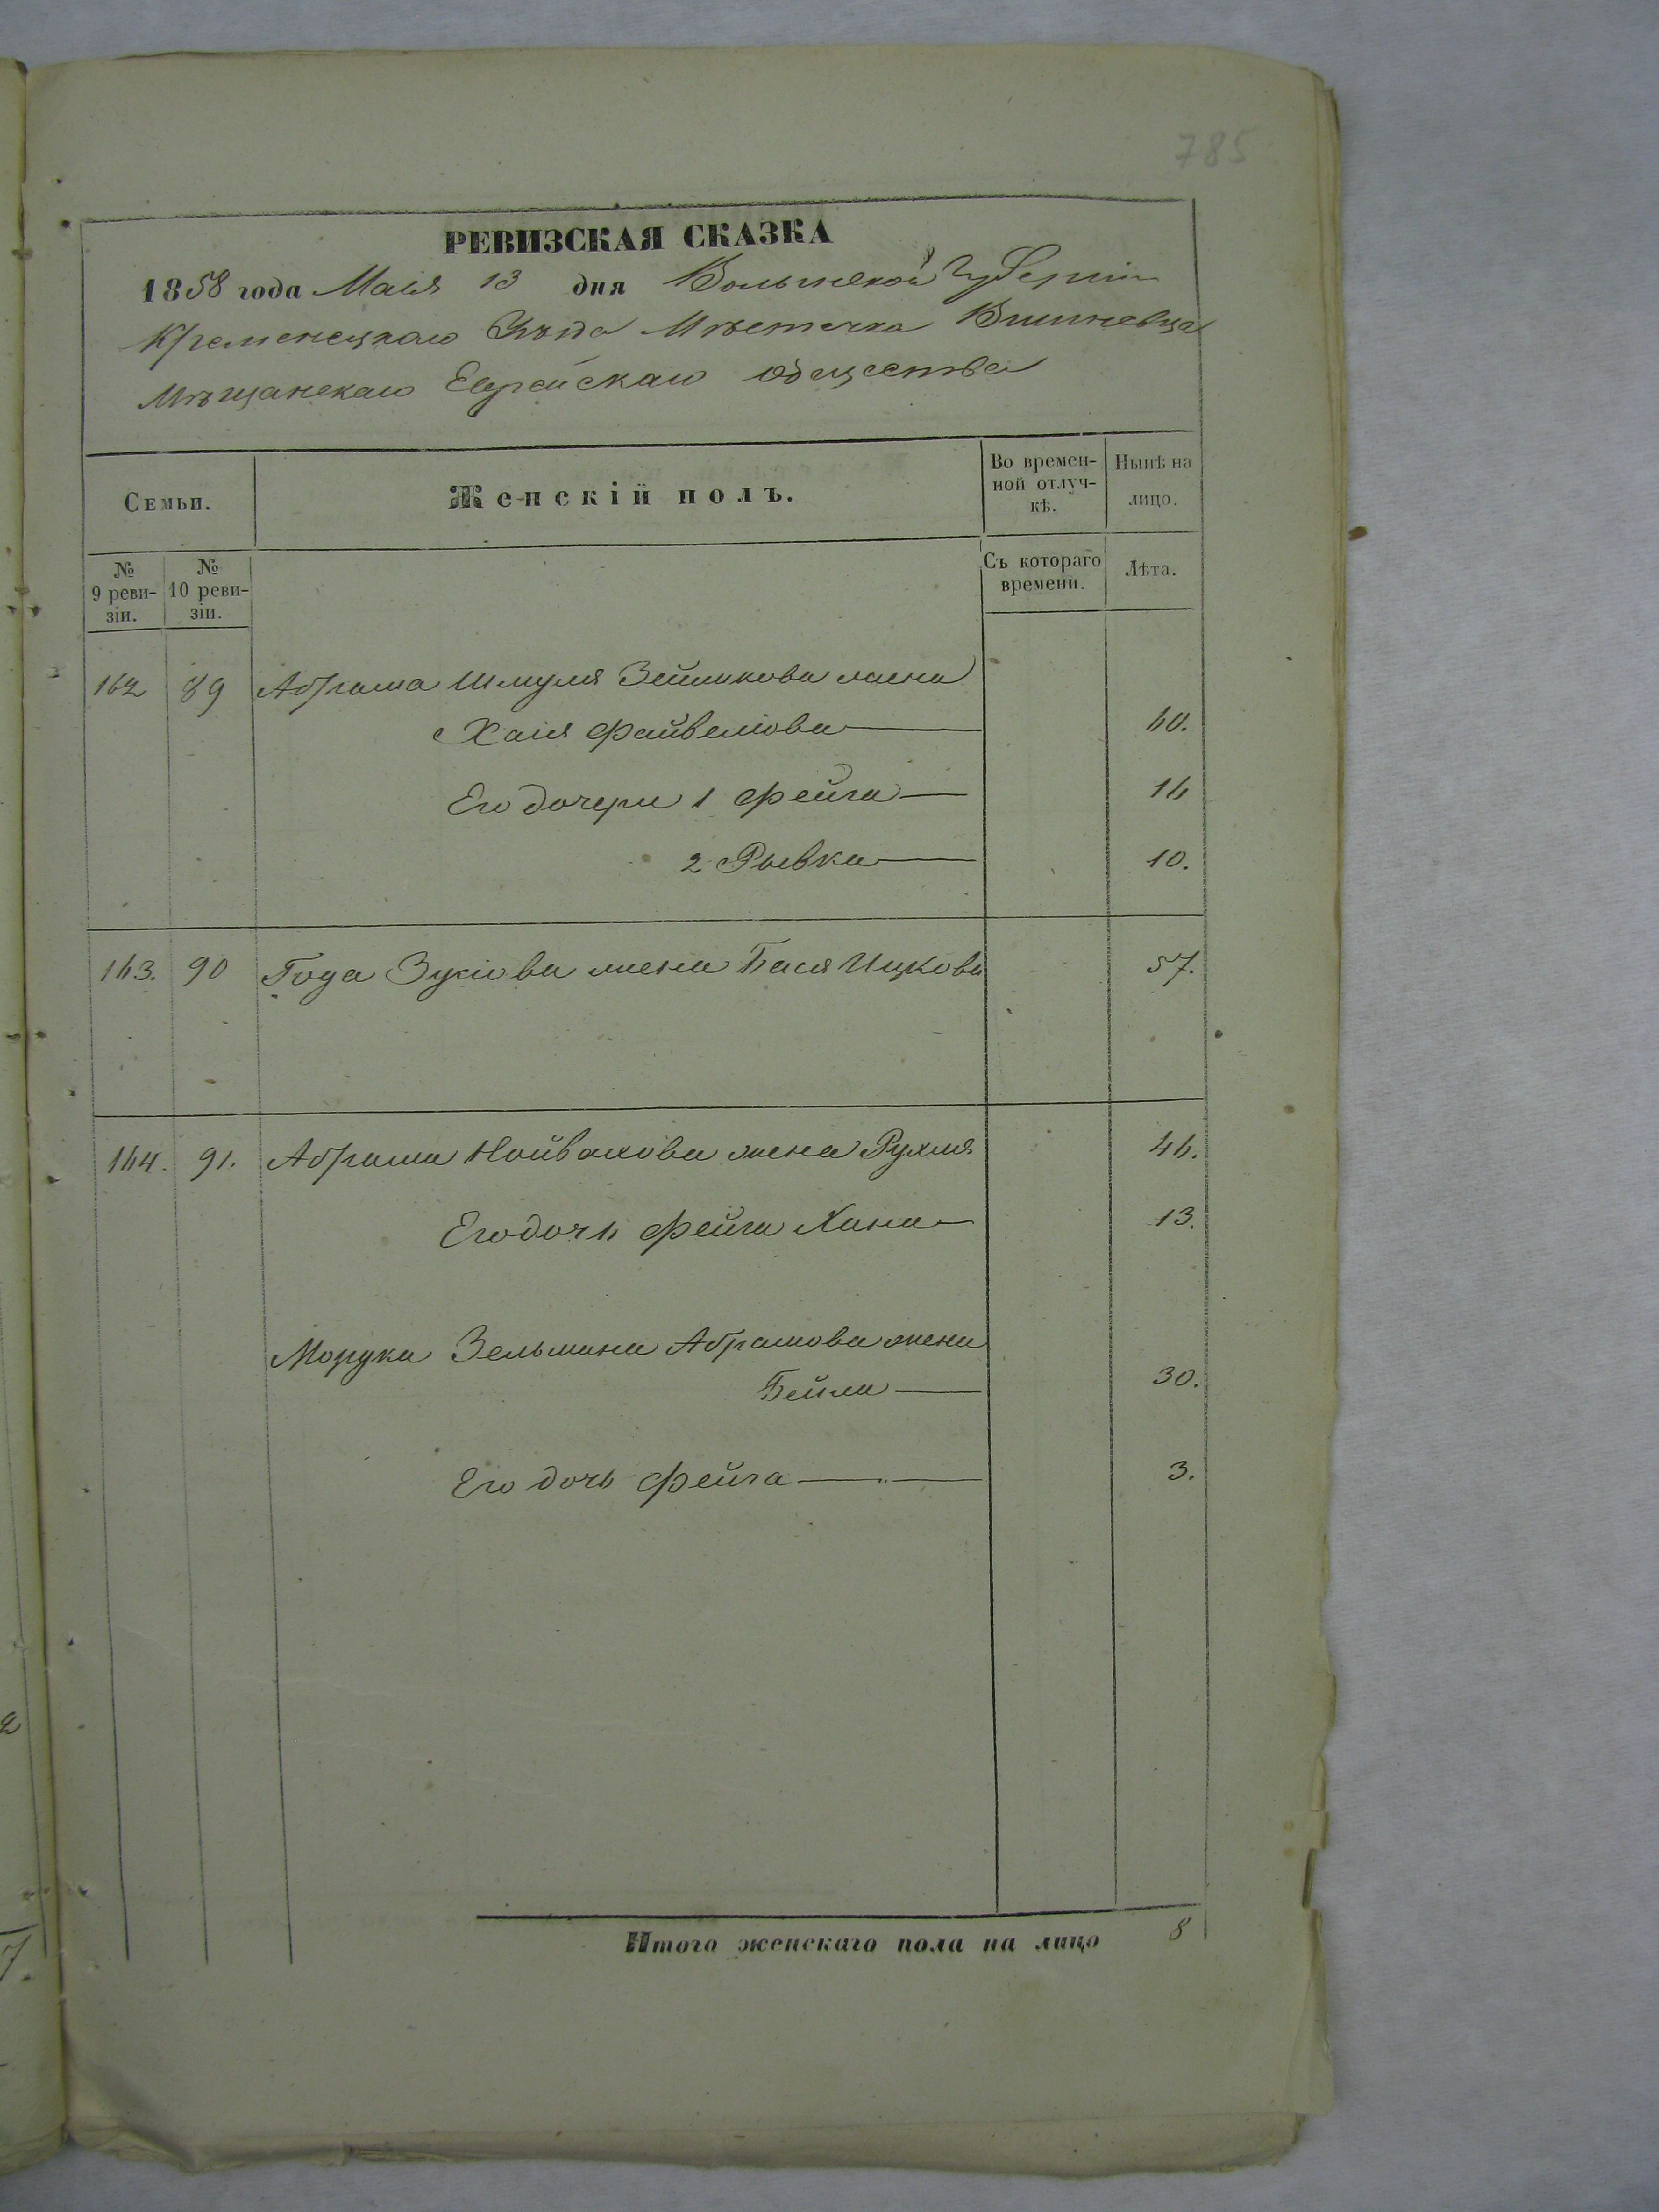 785
РЕВИЗСКАЯ СКАЗКА
1858 года Маія 13 дня Волынской Губерніи
Кременецкаго Уѣзда Мѣстечка Вишневца
Мѣщанскаго Еврейскаго общества
Семьи.
Женскій полъ.
Во времен-
ной отлуч-
кѣ.
Нынѣ на
лицо.
№
9 реви-
зіи.
№
10 реви-
зіи.
Съ котораго
времени.
Лѣта.
162 89 Абрама Шмуля Зейликова жена
Хаія Файвелюва 40.
Его дочери 1 Фейга 16
2 Рывка 10.
163. 90 Бася Ицкова 57.
жена
164. 91. Абрама жена Рухля 46.
Его дочь Фейга Хана 13.
Зельмана Абрамова жена
Бейла 30.
Его дочь Фейга 3.
Итого женскаго пола на лицо 8